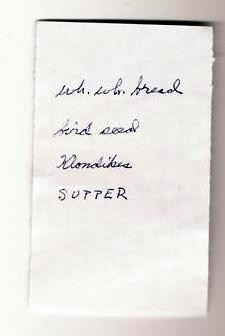 wh. wh. bread
bird seed
Klondikes
SUPPER